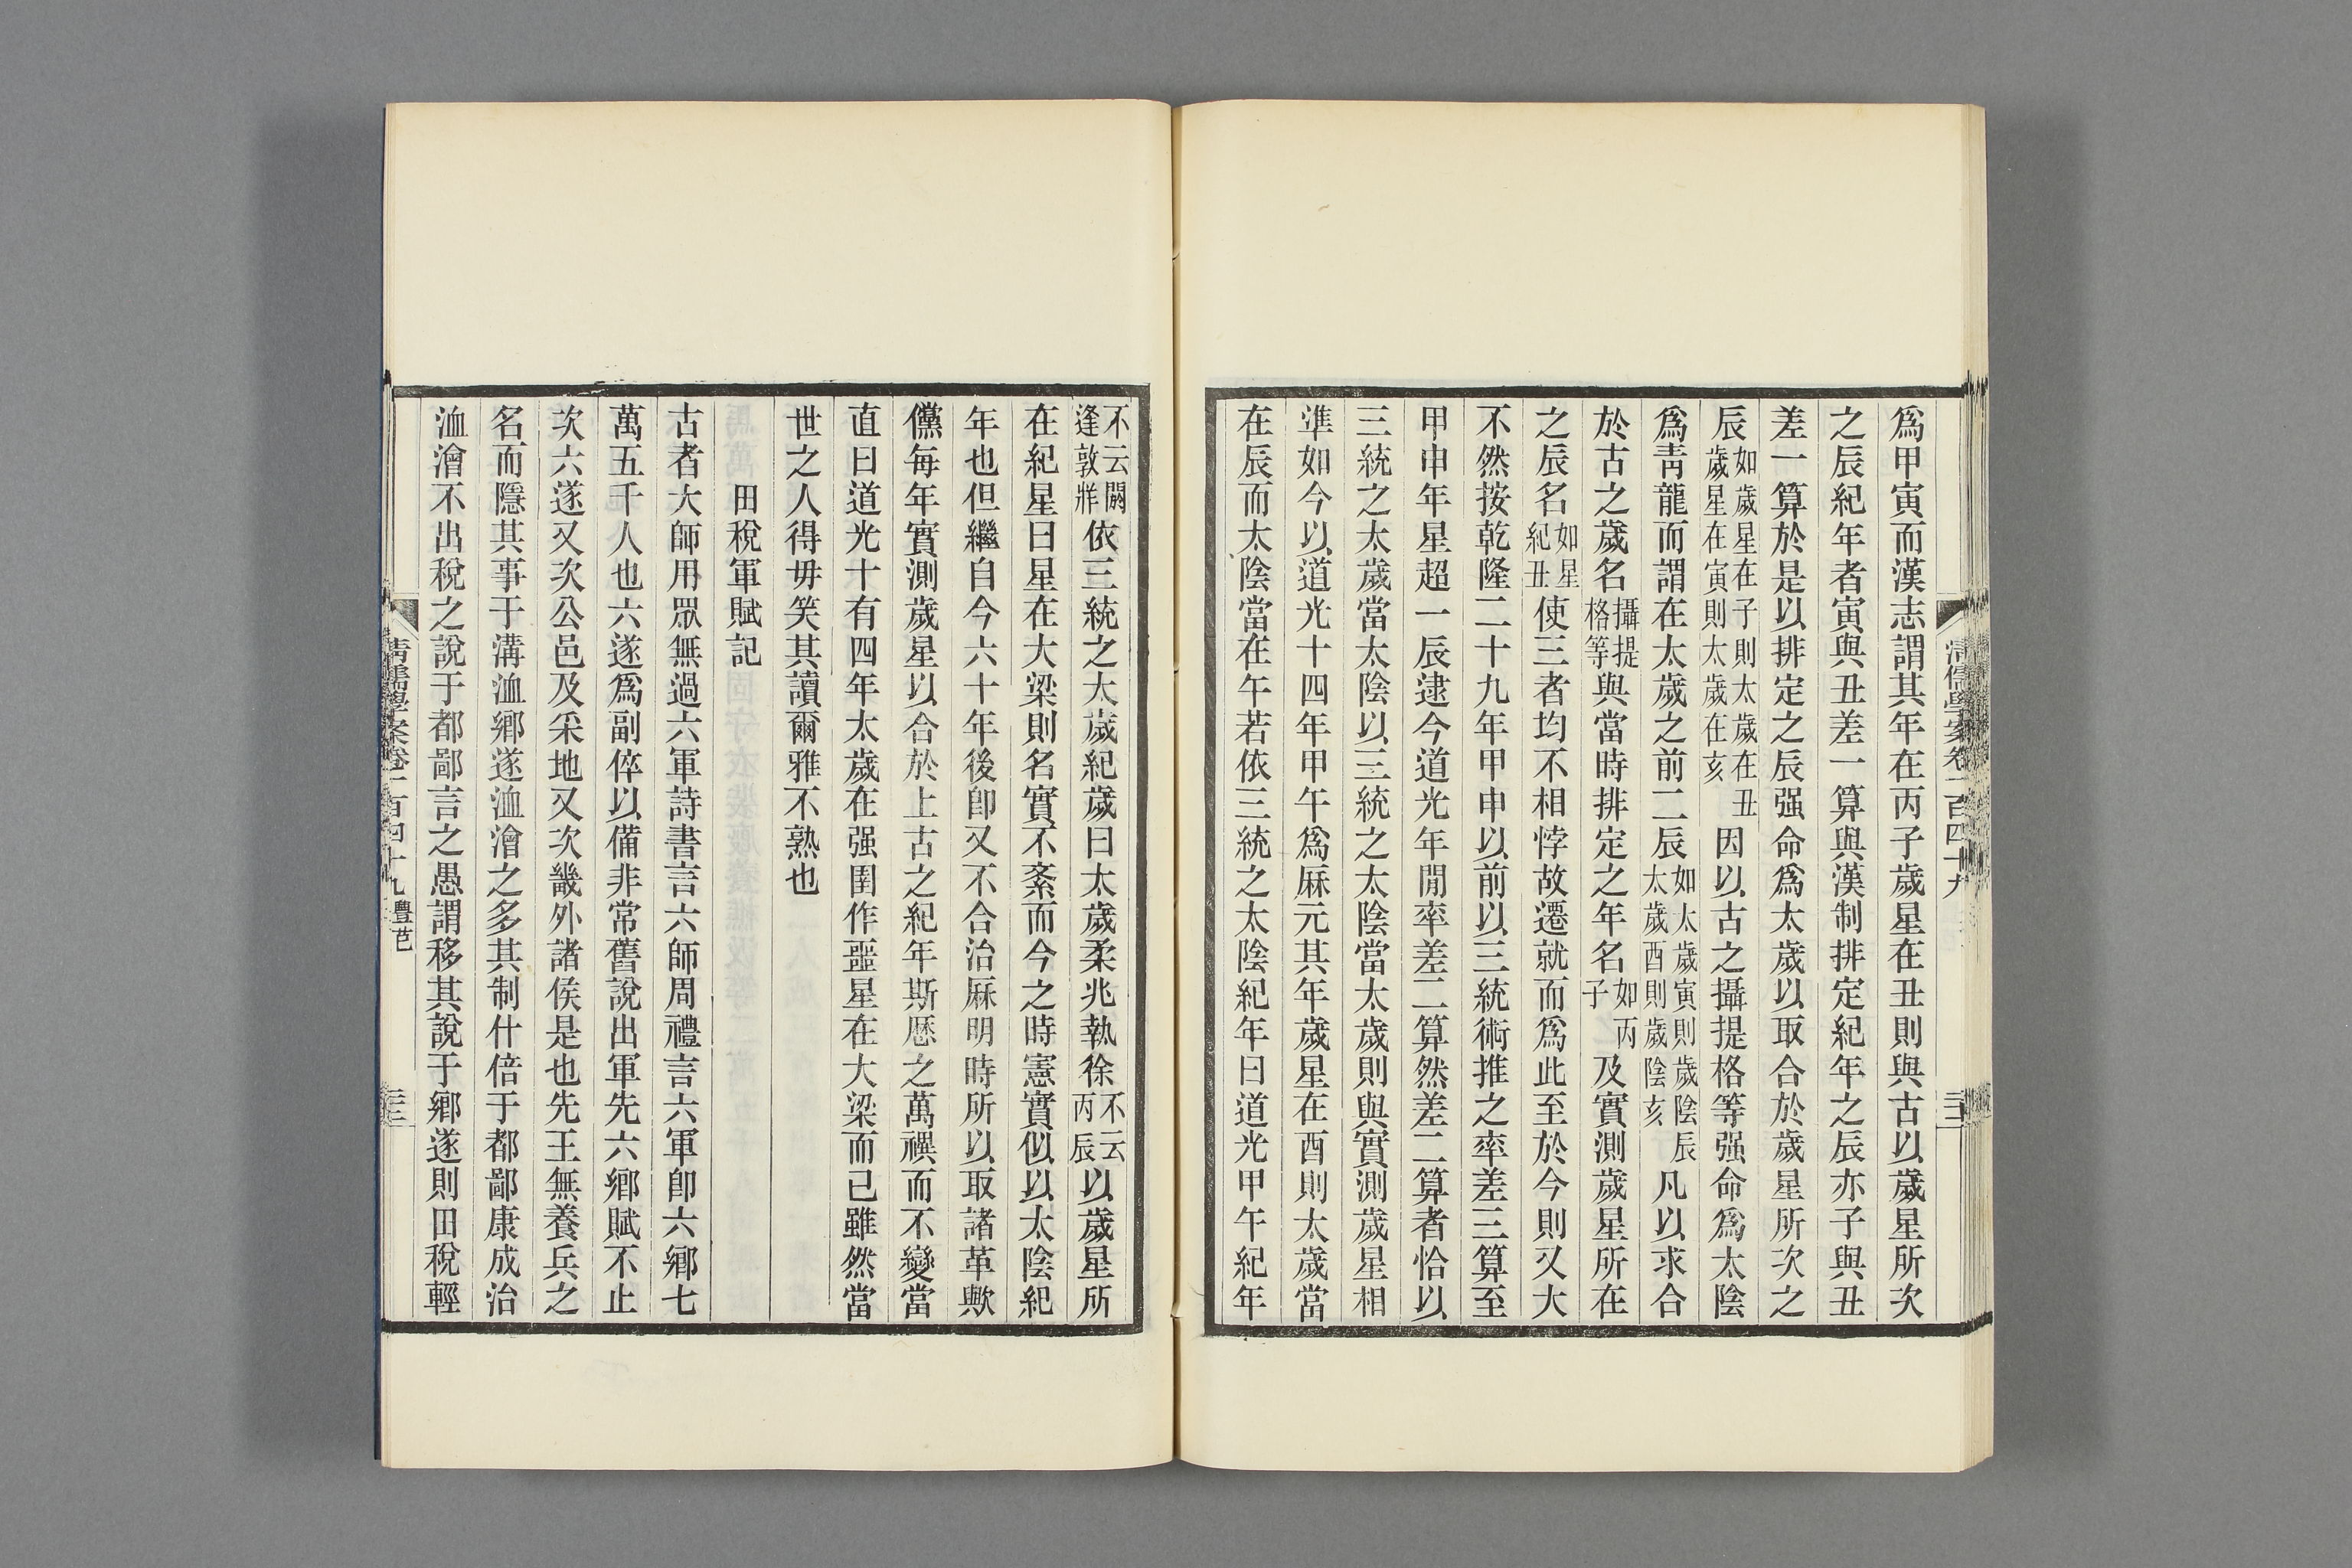 爲甲寅而漢志謂其年在丙子歲星在丑則與古以歲星所次
之辰紀年者寅與丑差一算與漢制排定紀年之辰亦子與丑
差一算於是以排定之辰强命爲太歲以取合於歲星所次之
辰如歲星在子則太歲在丑歲星在寅則太歲在亥因以古之攝提格等强命爲太陰
爲靑龍而謂在太歲之前二辰如太歲寅則歲陰辰太歲酉則歲陰亥凡以求合
於古之歲名攝提格等與當時排定之年名如丙子及實測歲星所在
之辰名如星紀丑使三者均不相悖故遷就而爲此至於今則又大
不然按乾隆二十九年甲申以前以三統術推之率差三算至
甲申年星超一辰逮今道光年閒率差二算然差二算者恰以
三統之太歲當太陰以三統之太陰當太歲則與實測歲星相
準如今以道光十四年甲午爲厤元其年歲星在酉則太歲當
在辰而太陰當在午若依三統之太陰紀年曰道光甲午紀年
清儒學案卷一百四十九
不云閼逢敦牂依三統之太歲紀歲曰太歲柔兆執徐不云丙辰以歲星所
在紀星曰星在大梁則名實不紊而今之時憲實似以太陰紀
年也但繼自今六十年後卽又不合治厤明時所以取諸革歟
儻每年實測歲星以合於上古之紀年斯歷之萬禩而不變當
直曰道光十有四年太歲在强圉作噩星在大梁而已雖然當
世之人得毋笑其讀爾雅不熟也
田稅軍賦記
古者大師用眾無過六軍詩書言六師周禮言六軍卽六鄉七
萬五千人也六遂爲副倅以備非常舊說出軍先六鄉賦不止
次六遂又次公邑及采地又次畿外諸侯是也先王無養兵之
名而隱其事于溝洫鄉遂洫澮之多其制什倍于都鄙康成治
洫澮不出稅之說于都鄙言之愚謂移其說于鄉遂則田稅輕
清儒學案卷一百四十九 豐芑